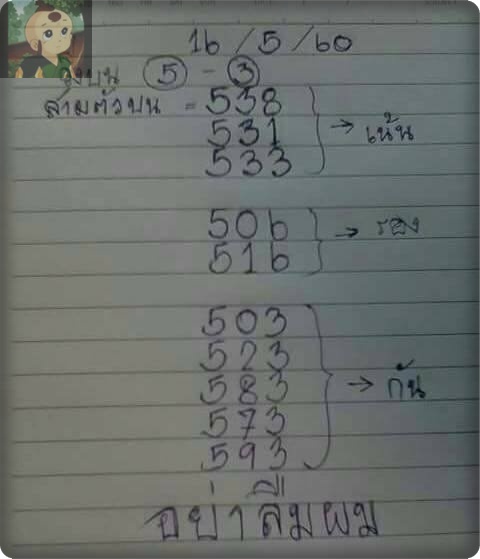 16 / 5 / 60
วิ่งบน 5 - 3
สามตัวบน = 538
531
533
→ เน้น
506
516
→ รอง
503
523
583
573
593
→ กัน
อย่าลืมผม